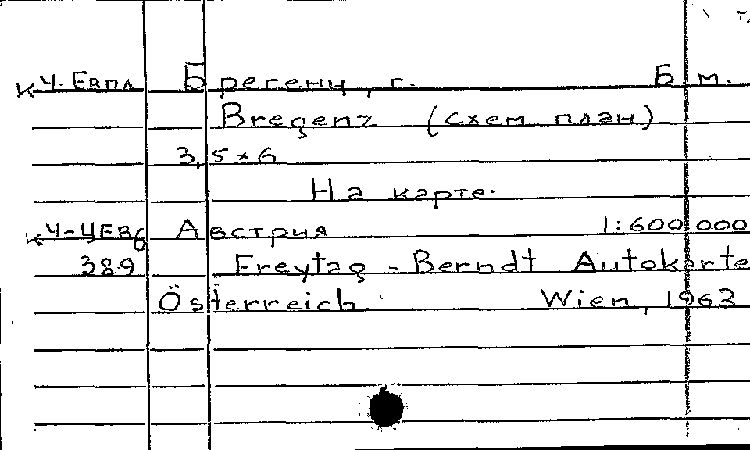 К Ч-Евпл Брегенц, г. Б м.
Bregenz (схем план)
3,5×6
На карте:
К Ч-ЦЕв6 Австрия 1:600 000
389 Freytag - Berndt Autokarte
Österreich Wien, 1962